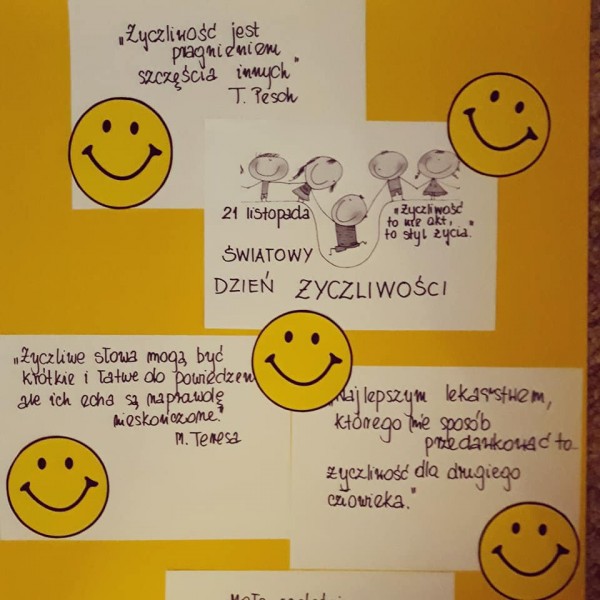 „Życzliwość jest
pragnieniem
szczęścia innych"
T. Pesch
21 listopada
„Życzliwość
to nie akt,
to styl życia."
ŚWIATOWY
DZIEŃ ŻYCZLIWOŚCI
„Życzliwe słowa mogą być
krótkie i łatwe do powiedzen
ale ich echa są naprawdę
nieskończone."
M. Teresa
„Najlepszym lekarstwem,
którego nie sposób
przedawkować to
życzliwość dla drugiego
człowieka."